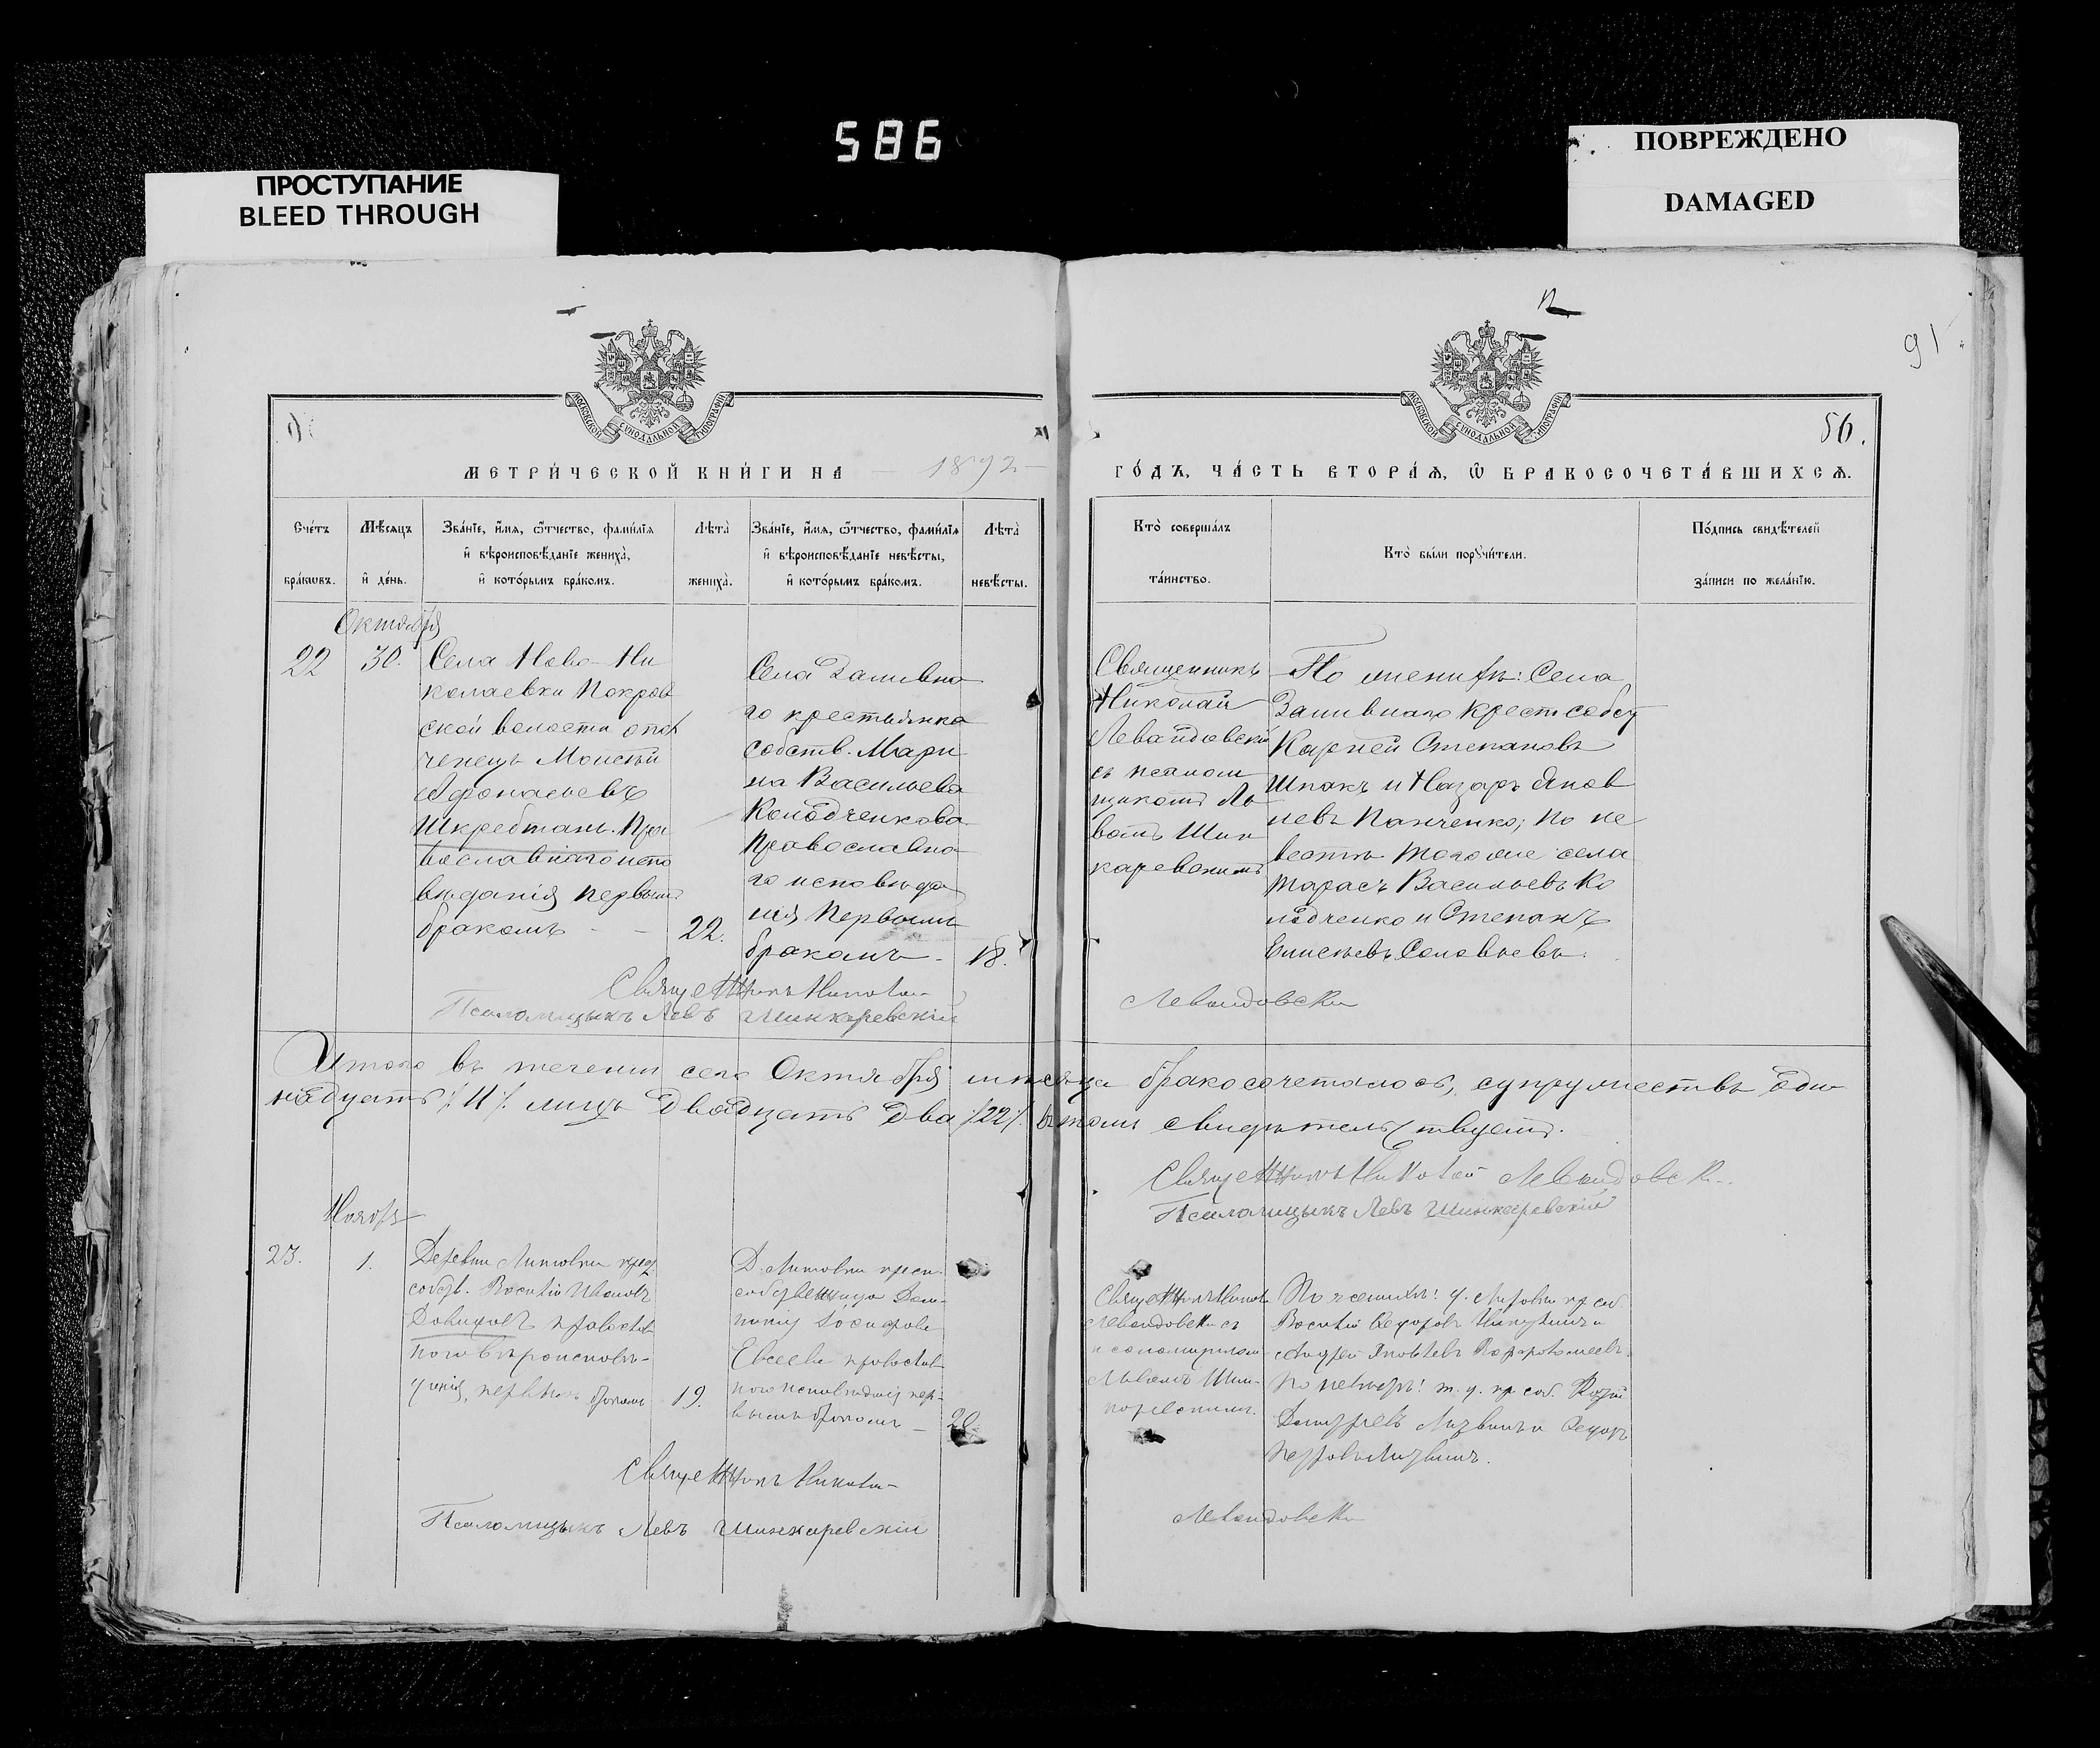 586
ПРОСТУПАНИЕ
BLEED THROUGH
ПОВРЕЖДЕНО
DAMAGED
91
56.
МОСКОВСКОЙ СѴНОДАЛЬНОЙ ТИПОГРАФІИ
МОСКОВСКОЙ СѴНОДАЛЬНОЙ ТИПОГРАФІИ
МЕТРИ́ЧЕСКОЙ КНИ́ГИ НА 1892
ГО́ДЪ, ЧА́СТЬ ВТОРА́Я, Ѡ БРАКОСОЧЕТА́ВШИХСѦ.
Сче́тъ бра́кѡвъ.
Мѣ́сяцъ и де́нь.
Зва́нїе, и́мя, ѻ́тчество, фами́лїя
и вѣроисповѣ́данїе жениха̀,
и кото́рымъ бра́комъ.
Лѣта̀ жениха̀.
Зва́нїе, и́мя, ѻ́тчество, фами́лїя
и вѣроисповѣ́данїе невѣ́сты,
и кото́рымъ бра́комъ.
Лѣта̀ невѣ́сты.
Кто̀ соверша́лъ
та́инство.
Кто̀ бы́ли порꙋчи́тели.
По́дпись свидѣ́телей
за́писи по жела́нїю.
Октября
22
30.
Села Ново-Ни
колаевки Покров
ской волости
Моисей
Афонасьевъ
Шкребтань. Пра
вославнаго испо
вѣданія первымъ
бракомъ - -
22.
Села Заливна
го крестьянка
собств. Мари
на Васильева
Колодченкова
Православна
го исповѣда
нія Первымъ
бракомъ -
18.
Священникъ
Николай
Левандовскій
съ псаломщ
щикомъ Ль
вомъ Шин
каревскимъ
По женихѣ: Села
Заливнаго крест собст
Корней Степановъ
Шпакъ и Назаръ Яков
левъ Панченко; по не
вестѣ того же села
Тарасъ Васильевъ Ко
лодченко и Степанъ
Елисѣевъ Соловьевъ.
Священникъ Николай
Левандовскій
Псаломщыкъ Левъ Шинкаревскій
Итого въ теченіи сего Октября мѣсяца бракосочеталось, супружествъ оди
надцать /11/. лицъ двадцать два /22/. въ томъ свидѣтельствуемъ.
Священникъ Николай Левандовскій
Псаломщыкъ Левъ Шинкаревскій
Ноябрь
23.
1.
Деревни Литовки крест
собств. Василій Ивановъ
Давидовъ православ
ного вѣроисповѣ-
данія, первымъ бракомъ
19.
Д. Литовки крест.
собственница Дом-
никія
Евсеева православ
ного исповѣданія пер-
вымъ бракомъ -
20.
Священникъ Никол
Левандовскій съ
псаломщикомъ
Львомъ Шин-
каревскимъ.
По женихѣ: д. Литовки кр соб.
Василій Федоровъ
Андрей Яковлевъ
по невѣстѣ: т. д. кр соб.
Дмитріевъ Литвинъ и Федоръ
Петровъ Литвинъ.
Священникъ Николай
Левандовскій
Псаломщыкъ Левъ Шинкаревскій